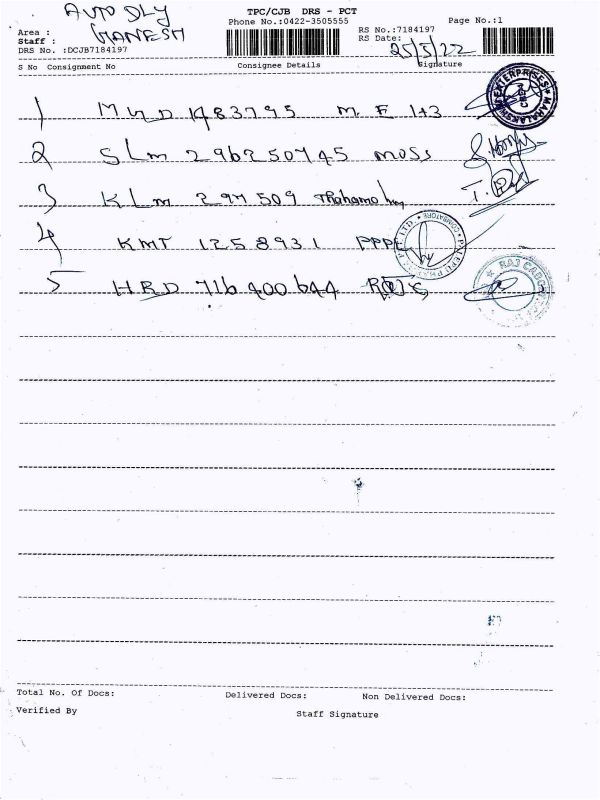 AUTO DLY
TPC/CJB DRS - PCT
Phone No.:0422-3505555
Page No.:1
Area :
Staff : GANESH
RS No.:7184197
RS Date: 25/5/22
DRS No. :DCJB7184197
S No Consignment No Consignee Details Signature
1 MUD 1483795 M E 1+3
2 SLM 296250745 MOSS
3 KLM 297509
4 KMT 1258931 PPPL
5 HRD 716400644
ENTERPRISES ★ MAHALAKSHMI
PVT. LTD. ★ COIMBATORE
★ RAJ CARGO
Total No. Of Docs: Delivered Docs: Non Delivered Docs:
Verified By Staff Signature